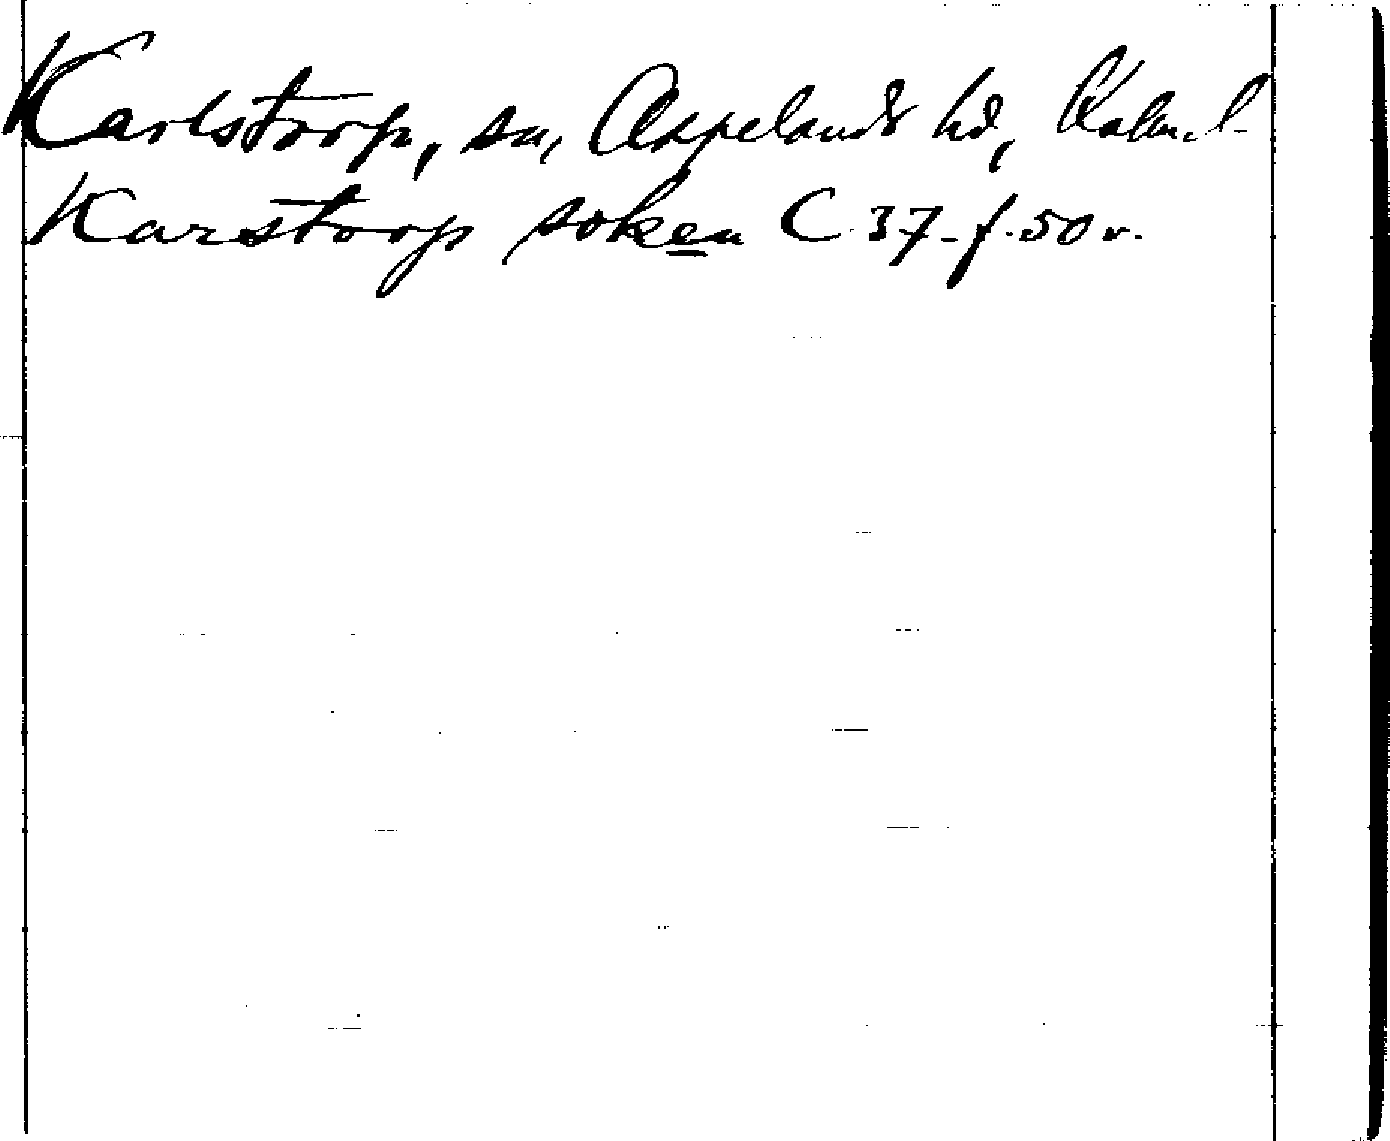 Karlstorp, sn, Aspelands hd, Kalm. l.
Karstorp soken C 37 f. 50 v.